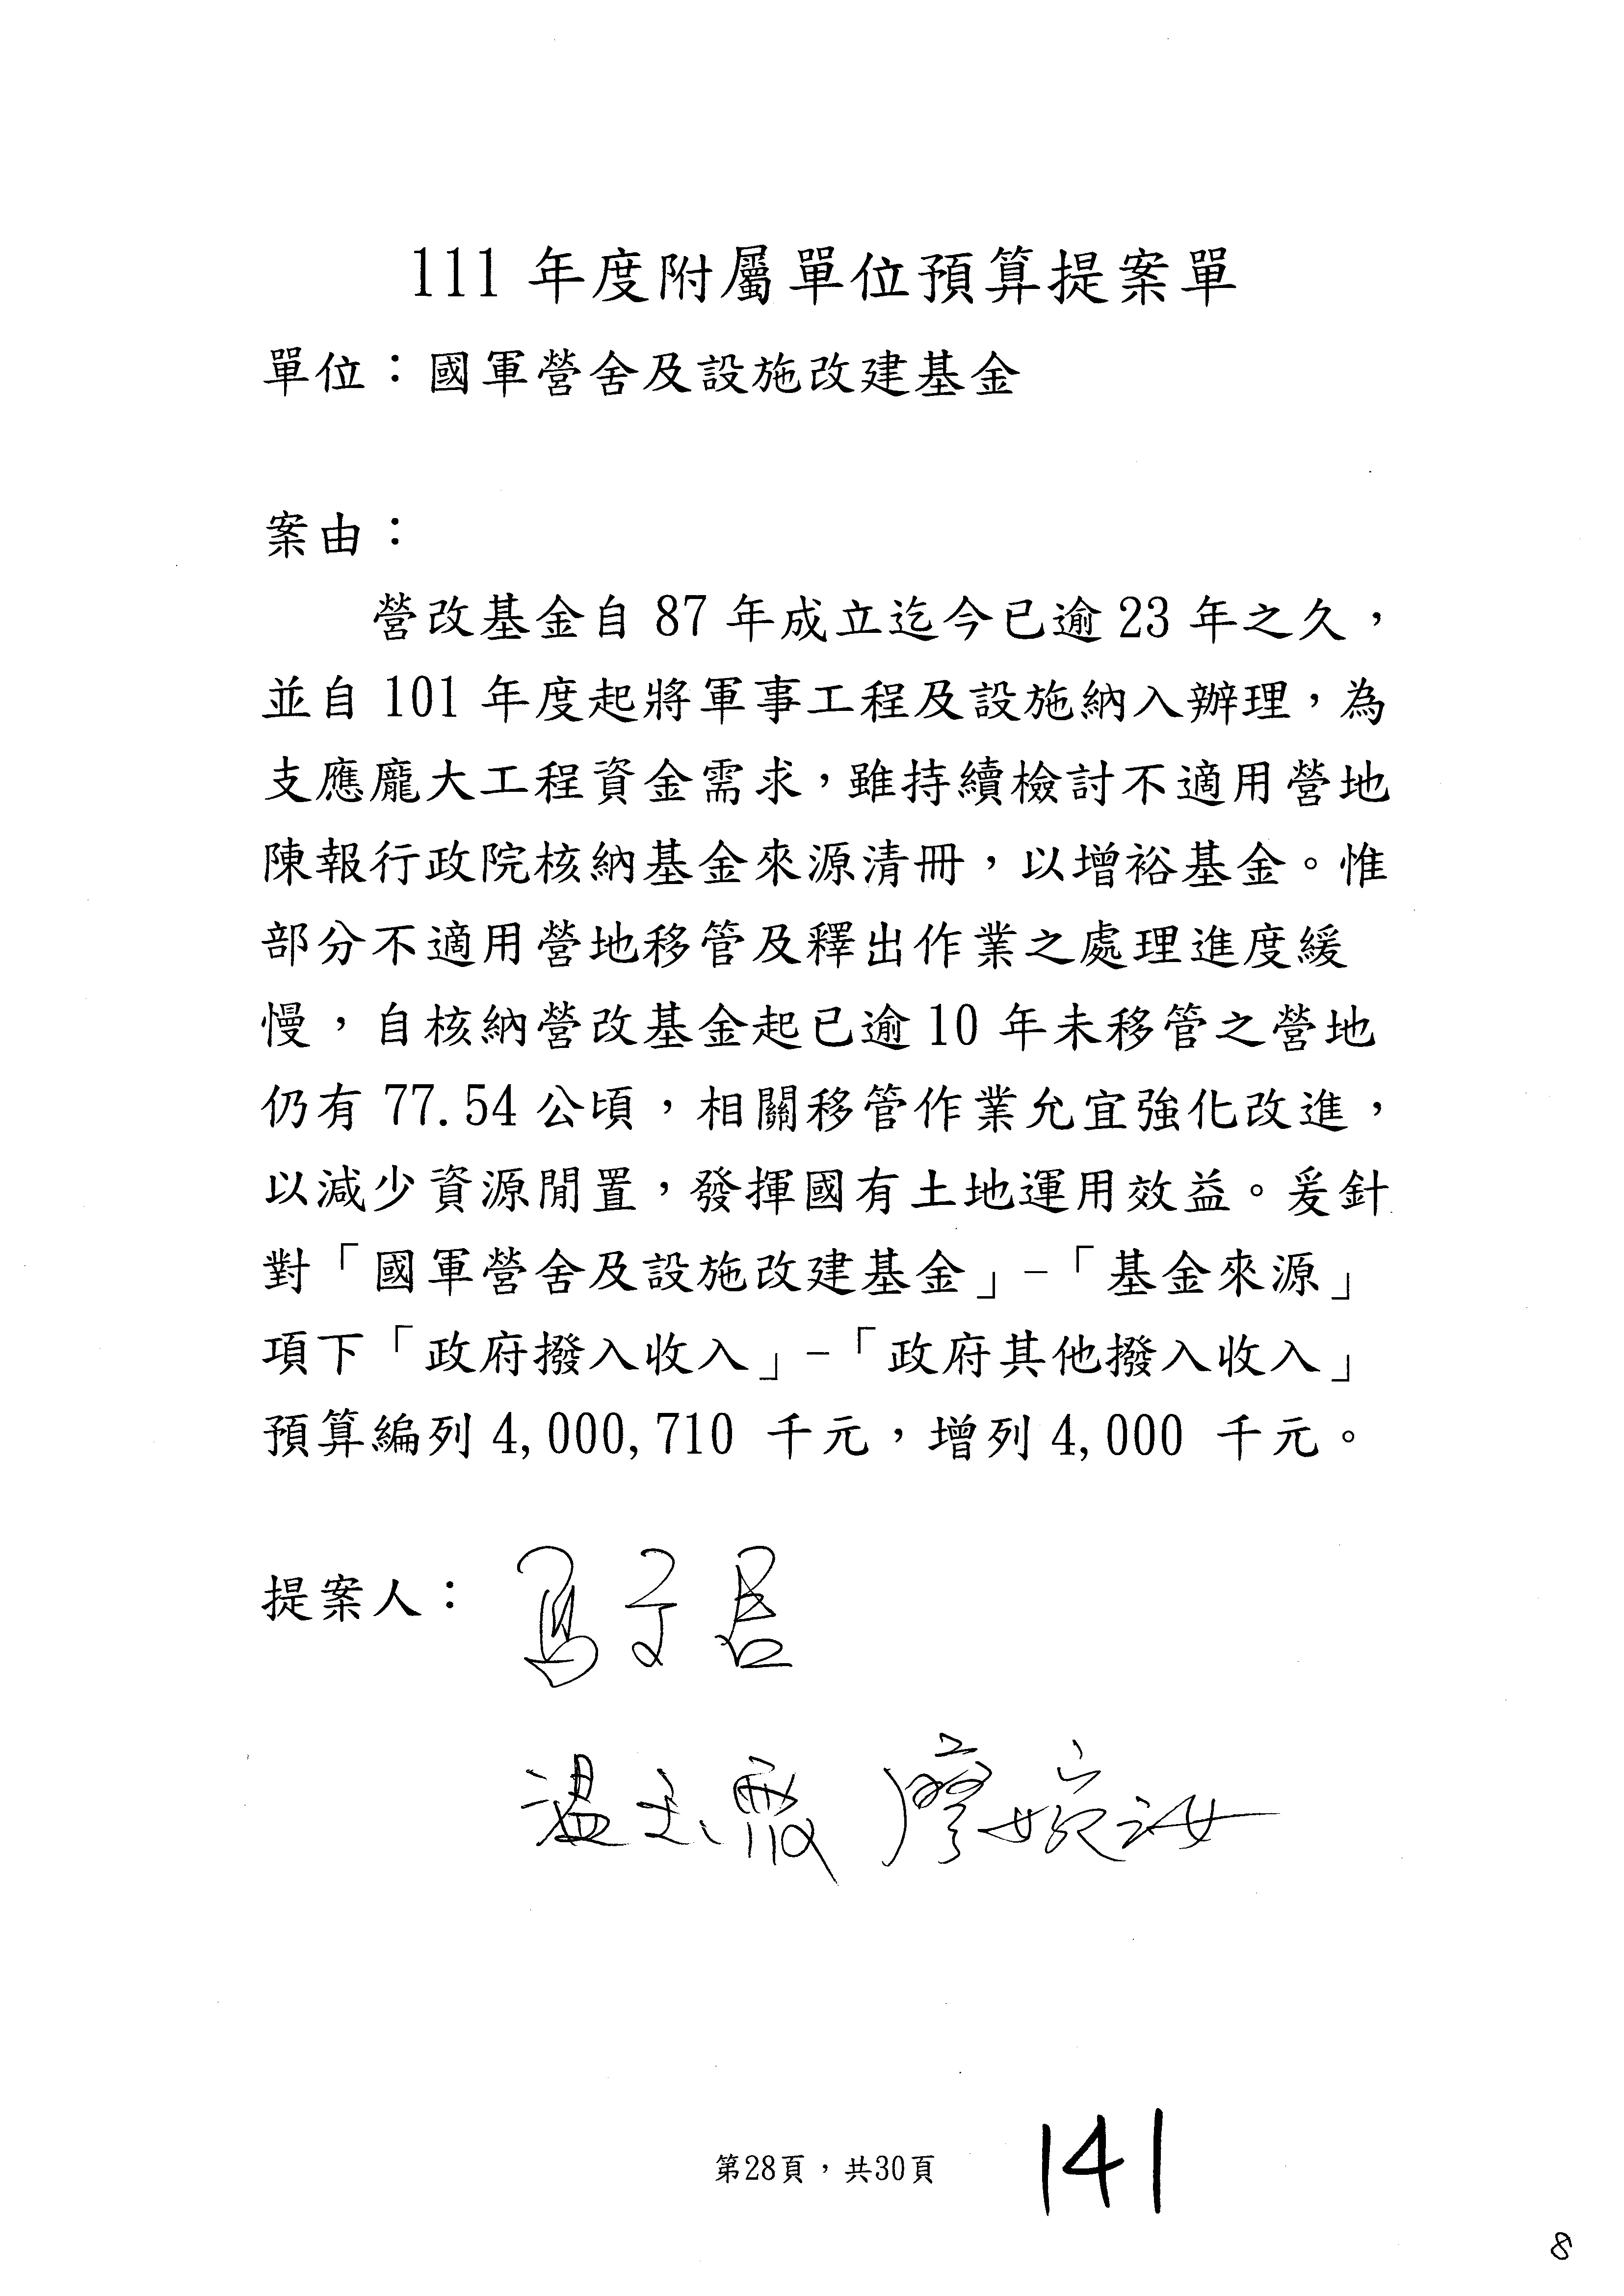 111 年度附屬單位預算提案單
單位：國軍營舍及設施改建基金
案由：
營改基金自 87 年成立迄今已逾 23 年之久，
並自 101 年度起將軍事工程及設施納入辦理，為
支應龐大工程資金需求，雖持續檢討不適用營地
陳報行政院核納基金來源清冊，以增裕基金。惟
部分不適用營地移管及釋出作業之處理進度緩
慢，自核納營改基金起已逾 10 年未移管之營地
仍有 77.54 公頃，相關移管作業允宜強化改進，
以減少資源閒置，發揮國有土地運用效益。爰針
對「國軍營舍及設施改建基金」-「基金來源」
項下「政府撥入收入」-「政府其他撥入收入」
預算編列 4,000,710 千元，增列 4,000 千元。
提案人： 馬文君
溫玉霞 廖婉汝
第28頁，共30頁 141
8